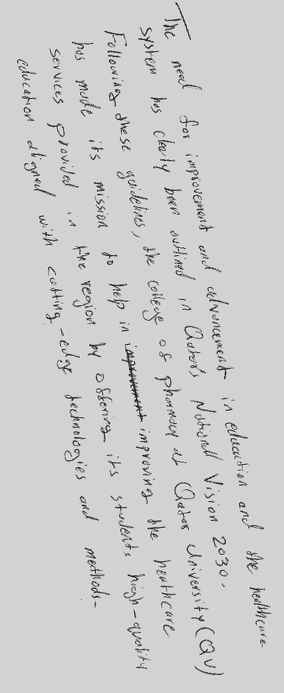 The need for improvement and advancement in education and the healthcare
system has clearly been outlined in Qatar's National Vision 2030.
Following these guidelines, the college of pharmacy at Qatar University (QU)
has made its mission to help in improvement improving the healthcare
services provided in the region by offering its students high-quality
education aligned with cutting-edge technologies and methods.